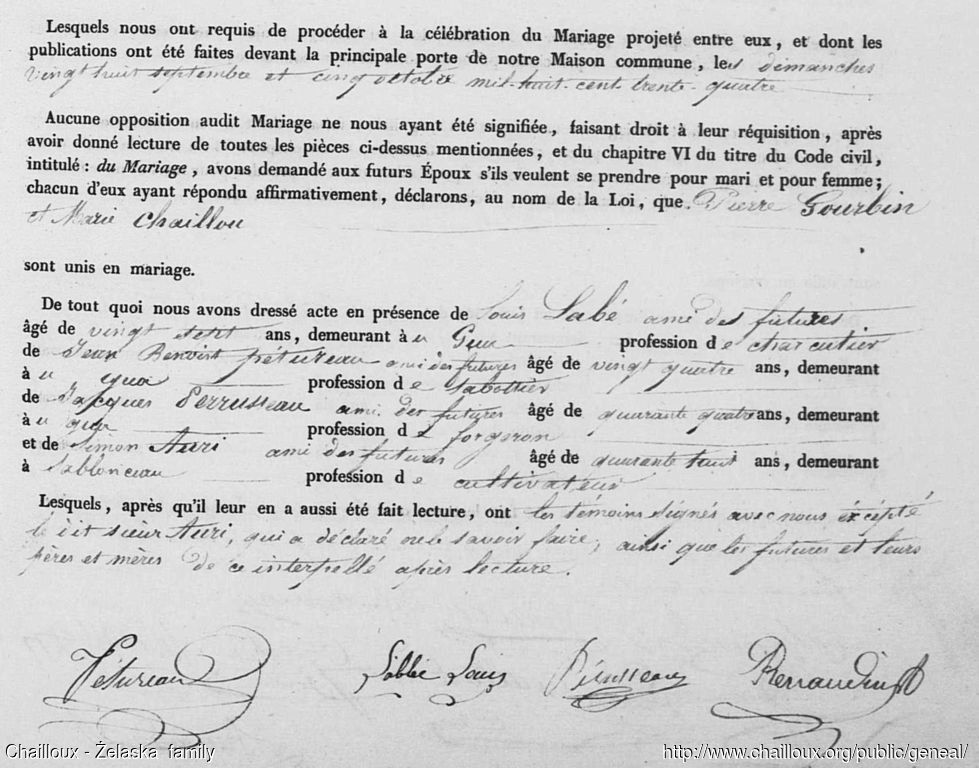 Lesquels nous ont requis de procéder à la célébration du Mariage projeté entre eux, et dont les
publications ont été faites devant la principale porte de notre Maison commune, les dimanches
vingt huit septembre et cinq octobre mil-huit-cent trente-quatre
Aucune opposition audit Mariage ne nous ayant été signifiée, faisant droit à leur réquisition, après
avoir donné lecture de toutes les pièces ci-dessus mentionnées, et du chapitre VI du titre du Code civil,
intitulé : du Mariage, avons demandé aux futurs Époux s'ils veulent se prendre pour mari et pour femme ;
chacun d'eux ayant répondu affirmativement, déclarons, au nom de la Loi, que Pierre Gourbin
et Marie Chaillou
sont unis en mariage.
De tout quoi nous avons dressé acte en présence de Louis Labé ami des futures
âgé de vingt sept ans, demeurant à u Gua profession de charcutier
de Jean Benoist pétureau ami des futures âgé de vingt quatre ans, demeurant
à u gua profession de sabottier
de Jacques Perrusseau ami des futures âgé de quarante quatre ans, demeurant
à u gua profession de forgeron
et de Simon Auri ami des futures âgé de quarante huit ans, demeurant
à Sablonceau profession de cultivateur
Lesquels, après qu'il leur en a aussi été fait lecture, ont les témoins signés avec nous éxcépté
le dit sieur Auri, qui a déclaré ne le savoir faire, ainsi que les futures et leurs
pères et mères de ce interpellé après lecture.
Pétureau Labbé Louis Renaudin
Chailloux - Żelaska family http://www.chailloux.org/public/geneal/